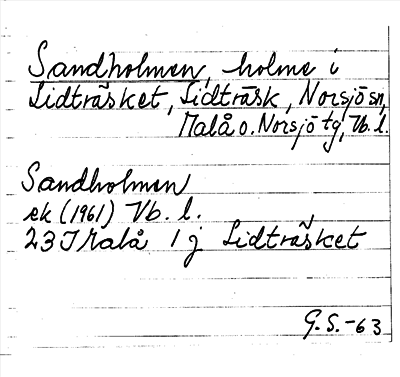 Sandholmen, holme i
Lidträsket, Lidträsk, Norsjö sn,
Malå o. Norsjö tg, Vb. l.
Sandholmen
ek (1961) Vb. l.
23 I Malå 1 j Lidträsket
G.S.-63